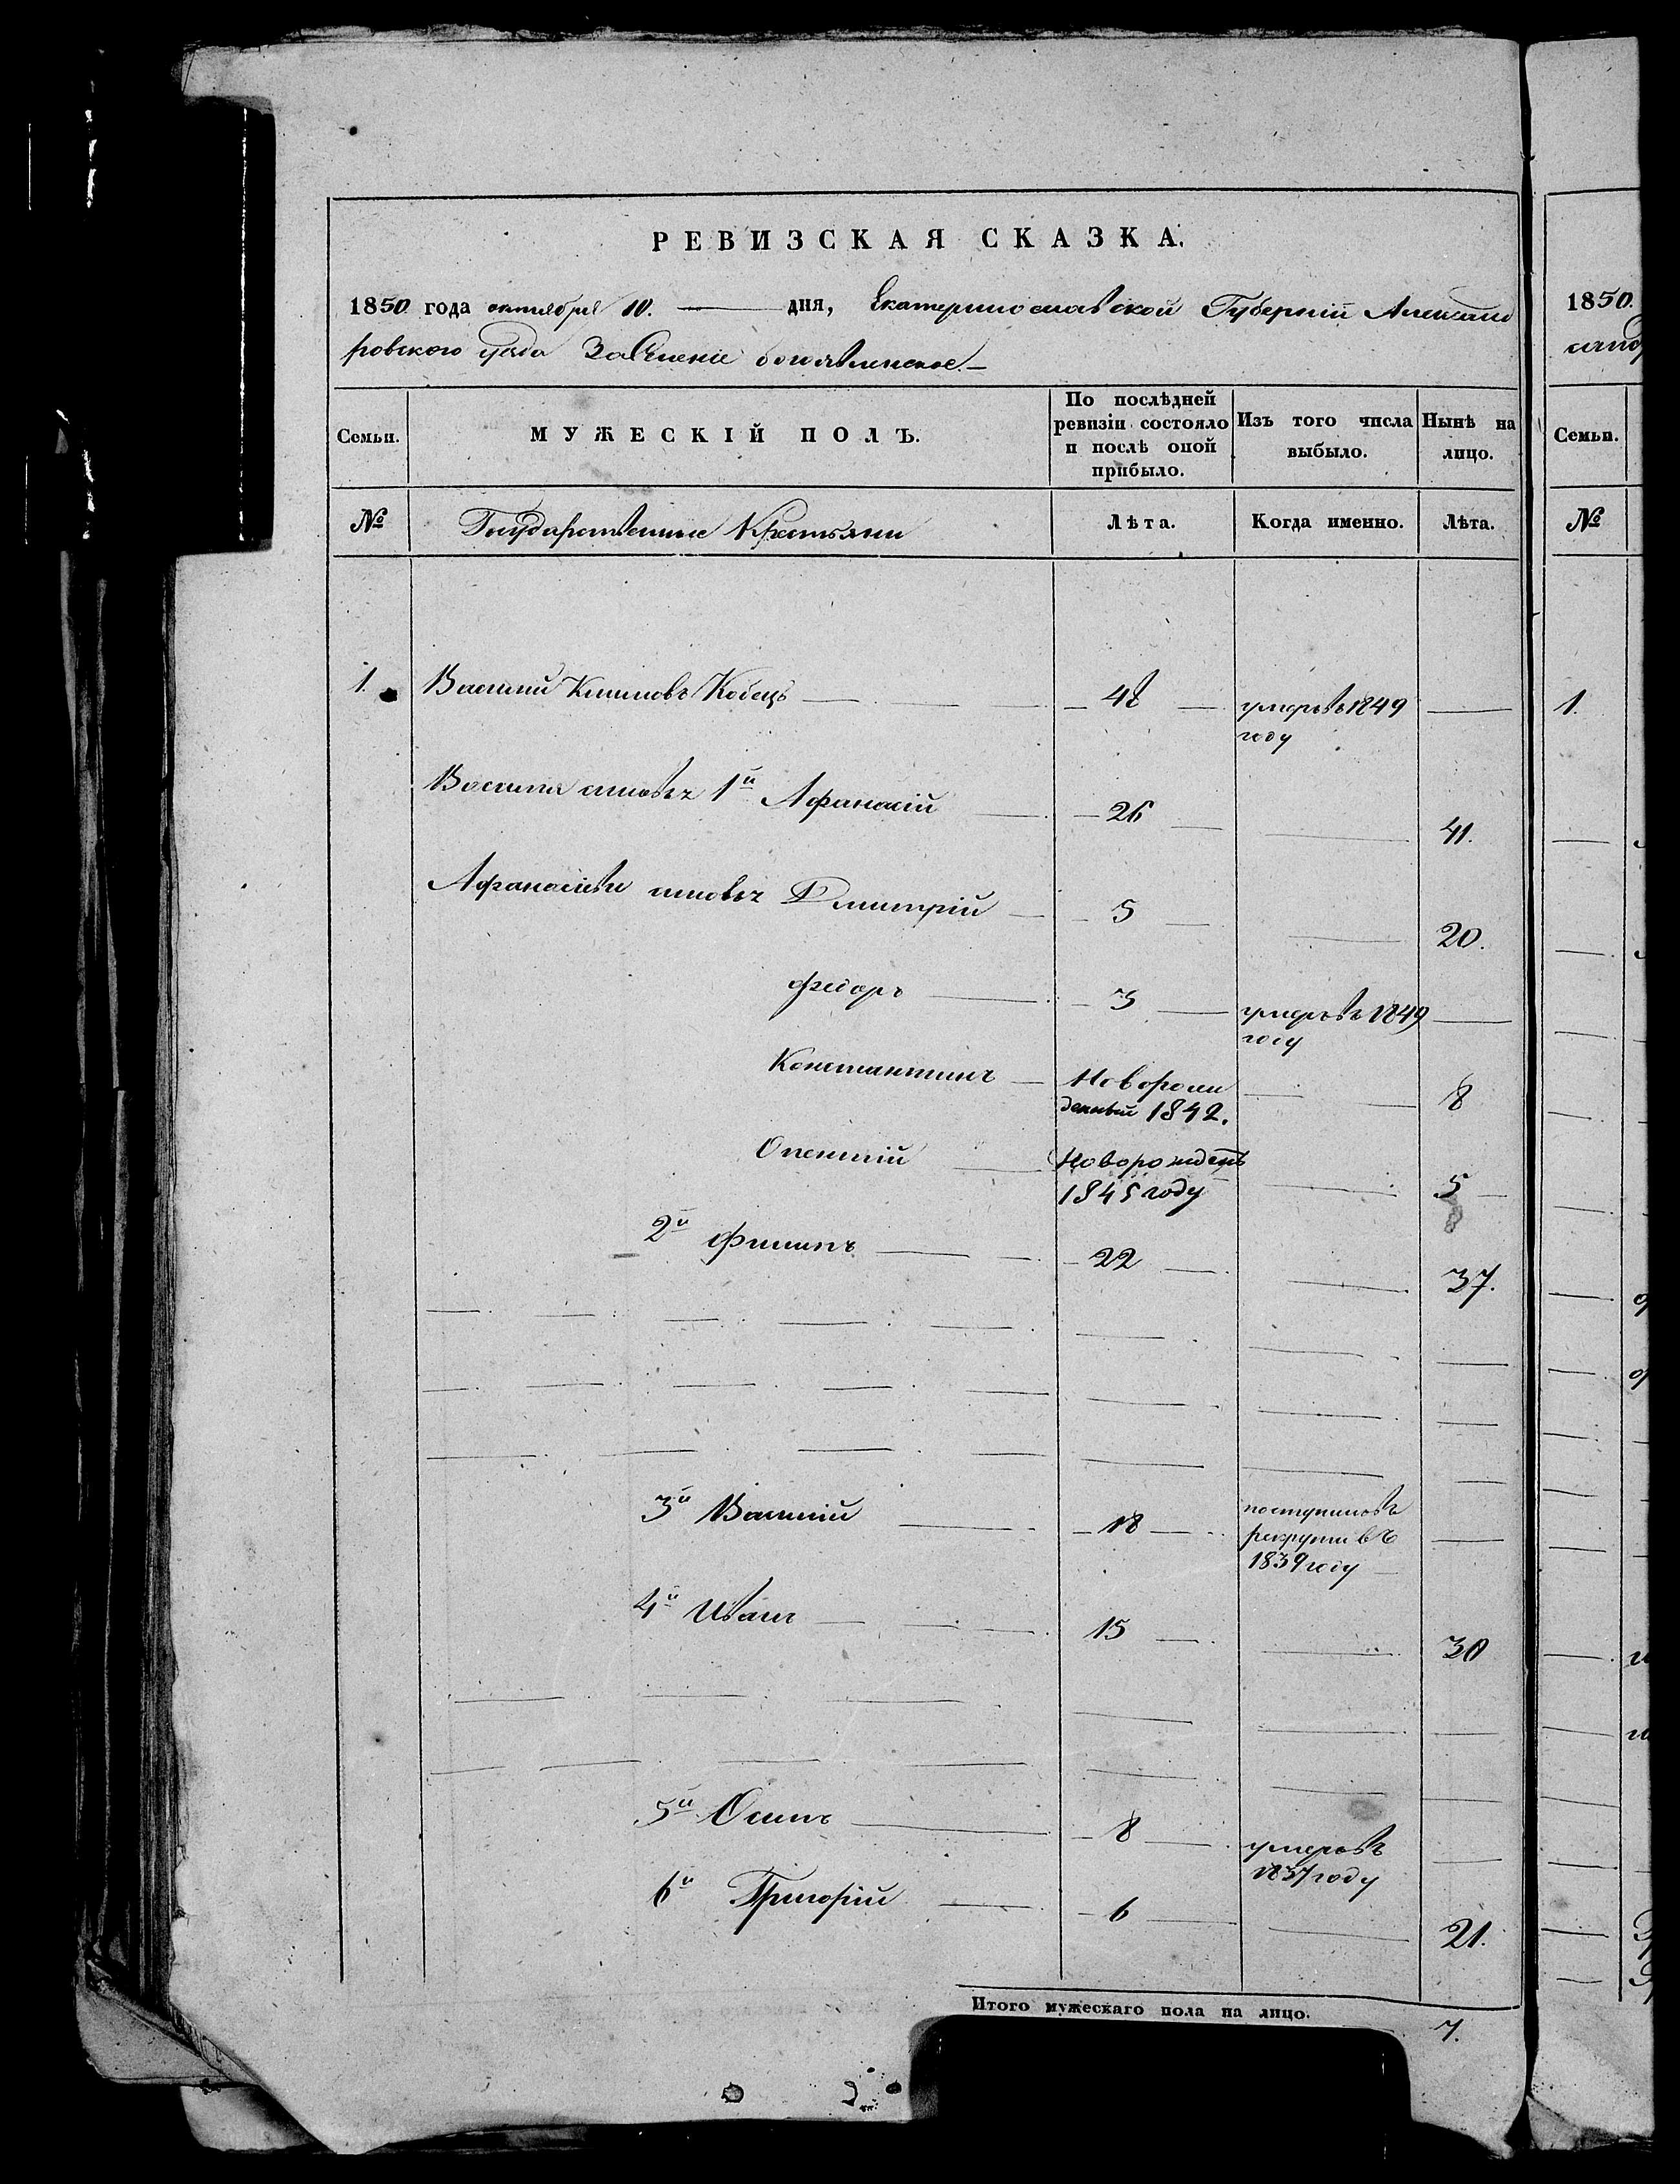 РЕВИЗСКАЯ СКАЗКА.
1850 года октября 10. дня, Екатеринославской Губерніи Александ
ровского уезда Заселеніе богоявленское.
Семьи.
МУЖЕСКІЙ ПОЛЪ.
По послѣдней ревизіи состояло и послѣ оной прибыло.
Изъ того числа выбыло.
Нынѣ на лицо.
№ Государственные Крестьяни Лѣта. Когда именно. Лѣта.
1. Василий Климовъ Кобецъ 48 умеръ въ 1849
году
Василія сыновья 1й Афанасій 26 41.
Афанасіевы сыновья Дмитрій 5 20.
Федоръ 3 умеръ въ 1849
году
КонстантинъНоворож
денный 1842. 8
Новорожденъ
1845 году 5
2й Филипъ 22 37.
3й Василій 18 поступилъ въ
рекруты въ
1839 году
4й Иванъ 15 30
5й Осипъ 8 умеръ въ
1837 году
6й Григорій 6 21.
Итого мужескаго пола на лицо. 7.
1850.
Семьи.
№
1.